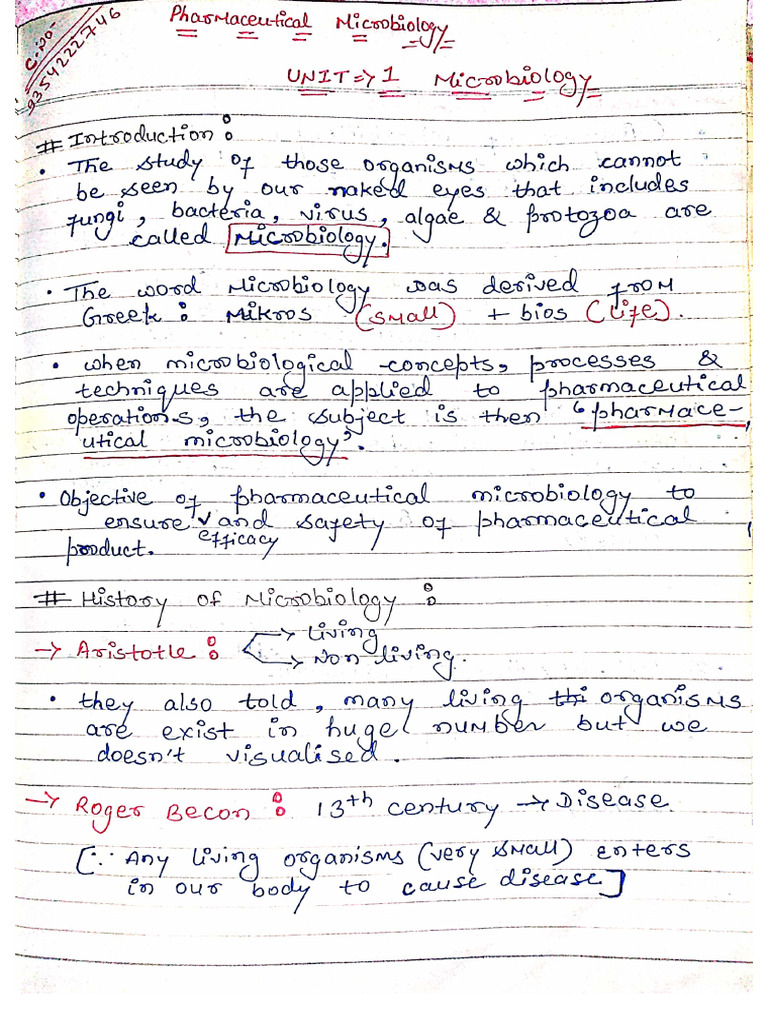 C.no-
9354222746
Pharmaceutical Microbiology
UNIT => 1 Microbiology
# Introduction :
• The study of those organisms which cannot
be seen by our naked eyes that includes
fungi, bacteria, virus, algae & protozoa are
called Microbiology.
• The word Microbiology was derived from
Greek : Mikros (small) + bios (life).
• when microbiological concepts, processes &
techniques are applied to pharmaceutical
operations, the subject is then "pharmace-
utical microbiology".
• Objective of pharmaceutical microbiology to
ensure ✓ and safety of pharmaceutical
efficacy
product.
# History of Microbiology :
→ Aristotle : → Living
→ Non living.
• they also told, many living thi organisms
are exist in huge number but we
doesn't visualised.
→ Roger Becon : 13th century → Disease.
[∵ Any living organisms (very small) enters
in our body to cause disease]